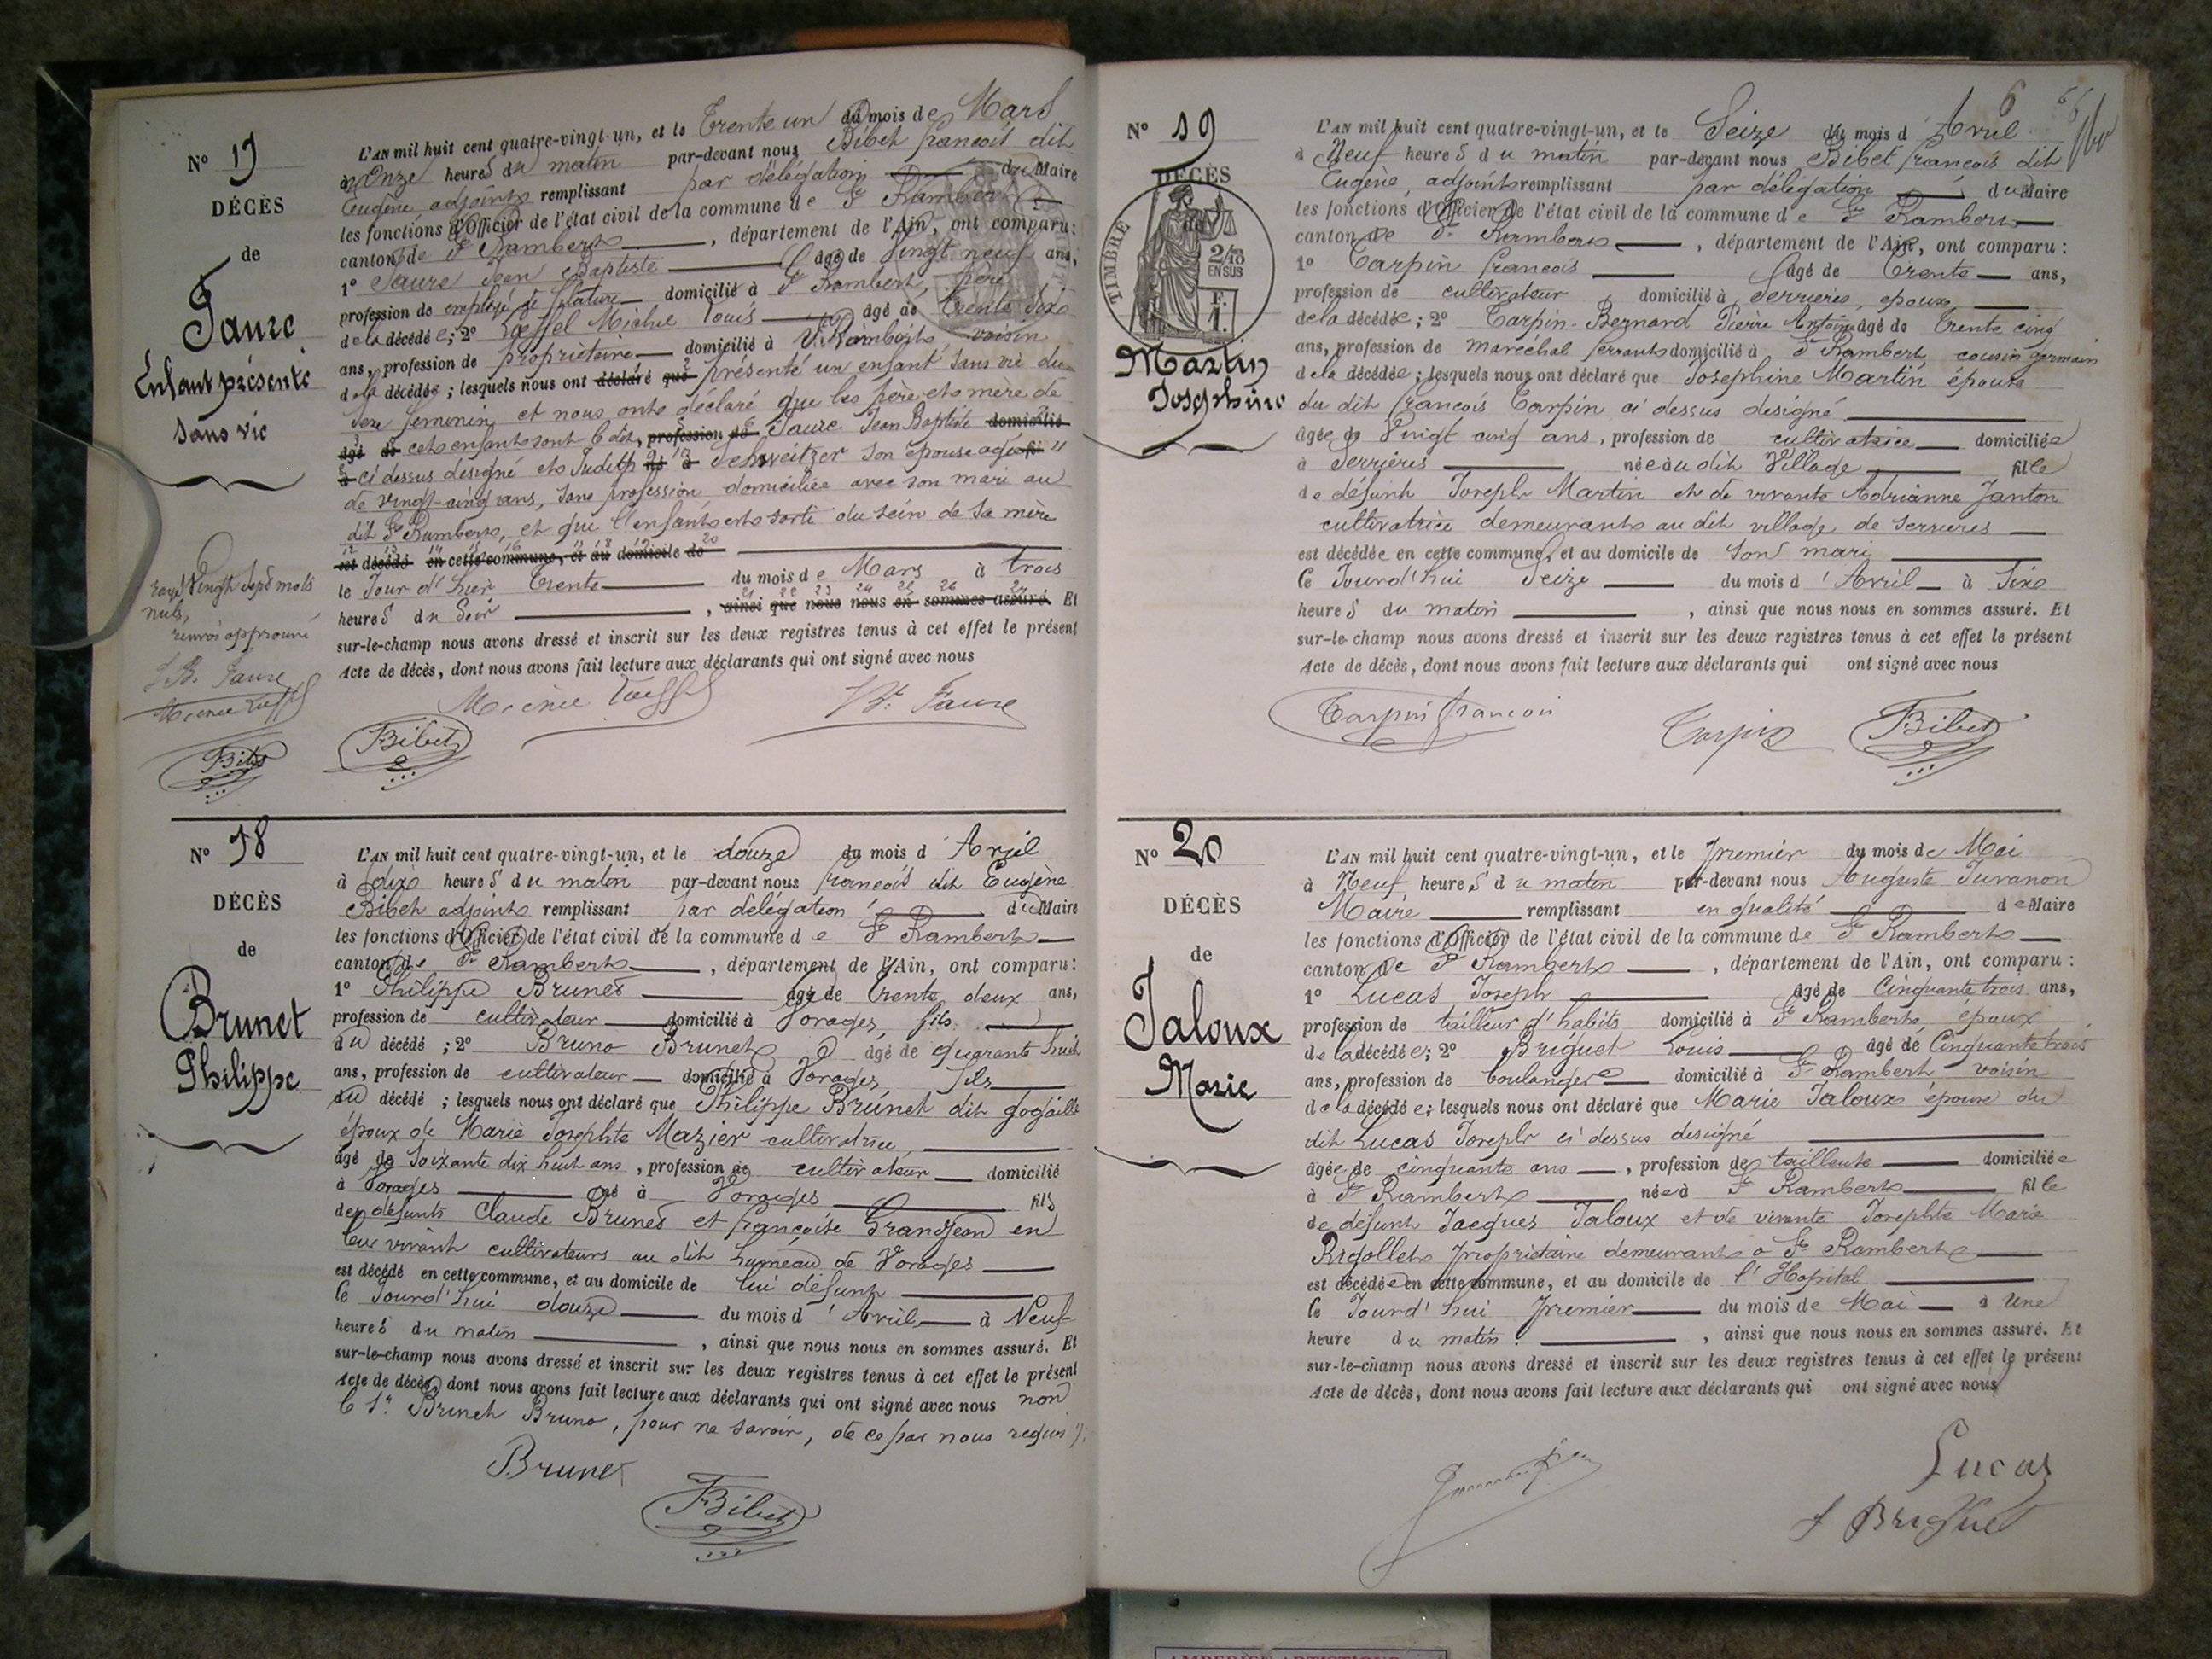 N° 17
DÉCÈS
de
Faure
Enfant présenté
sans vie
L'AN mil huit cent quatre-vingt-un, et le Trente un du mois de Mars
à Onze heures du matin par-devant nous Bibet françois dit
Eugène adjoint remplissant par délégation du Maire
les fonctions d'Officier de l'état civil de la commune de St Rambert
canton de St Rambert, département de l'Ain, ont comparu :
1° Faure Jean Baptiste âgé de Vingt neuf ans,
profession de employé de filature domicilié à St Rambert, père
de la décédée ; 2° Loeffel Michel Louis âgé de trente six
ans, profession de propriétaire domicilié à St Rambert voisin
de la décédée ; lesquels nous ont déclaré que présenté un enfant sans vie du
sexe feminin et nous ont déclaré que les père et mère de
âgé de cet enfant sont le dit, profession de Faure Jean Baptiste domicilié
à ci dessus designé et Judith né à Schweitzer son épouse agée fi
de vingt-cinq ans, sans profession, domiciliée avec son mari au
dit St Rambert, et que l'enfant est sorti du sein de sa mère
est décédé en cette commune, et au domicile de
le Jour d'hier trente du mois de Mars à trois
heures du Soir, ainsi que nous nous en sommes assuré. Et
sur-le-champ nous avons dressé et inscrit sur les deux registres tenus à cet effet le présent
Acte de décès, dont nous avons fait lecture aux déclarants qui ont signé avec nous
rayé Vingt sept mots
nuls,
renvoi approuvé
J B. Faure
Bibet
Bt. Faure
Bibet
N° 18
DÉCÈS
de
Brunet
Philippe
L'AN mil huit cent quatre-vingt-un, et le douze du mois d'Avril
à dix heures du matin par-devant nous françois dit Eugène
Bibet adjoint remplissant par délégation du Maire
les fonctions d'Officier de l'état civil de la commune de St Rambert
canton de St Rambert, département de l'Ain, ont comparu :
1° Philippe Brunet âgé de trente deux ans,
profession de cultivateur domicilié à Vorages, fils
du décédé ; 2° Bruno Brunet âgé de quarante huit
ans, profession de cultivateur domicilié à Vorages, fils
du décédé ; lesquels nous ont déclaré que Philippe Brunet dit
époux de Marie Josephte Mazier cultivatrice,
âgé de Soixante dix huit ans, profession de cultivateur domicilié
à Vorages né à Vorages fils
des défunts Claude Brunet et françoise Grandjean en
leur vivant cultivateurs au dit hameau de Vorages
est décédé en cette commune, et au domicile de lui défunt
Ce Jourd'hui douze du mois d'Avril à Neuf
heures du matin, ainsi que nous nous en sommes assuré. Et
sur-le-champ nous avons dressé et inscrit sur les deux registres tenus à cet effet le présent
Acte de décès, dont nous avons fait lecture aux déclarants qui ont signé avec nous non
le Sr. Brunet Bruno, pour ne savoir, de ce par nous requis
Brunet
Bibet
6
N° 19
DÉCÈS
de
TIMBRE
2/10
EN SUS
F.
1.
Martin
Josephine
L'AN mil huit cent quatre-vingt-un, et le Seize du mois d'Avril
à Neuf heures du matin par-devant nous Bibet françois dit
Eugène, adjoint remplissant par délégation du Maire
les fonctions d'Officier de l'état civil de la commune de St Rambert
canton de St Rambert, département de l'Ain, ont comparu :
1° Carpin françois âgé de trente ans,
profession de cultivateur domicilié à Serrières, époux
de la décédée ; 2° Carpin-Bernard Pierre Antoine âgé de trente cinq
ans, profession de maréchal ferrant domicilié à St Rambert, cousin germain
de la décédée ; lesquels nous ont déclaré que Josephine Martin épouse
du dit françois Carpin ci dessus designé
âgée de Vingt cinq ans, profession de cultivatrice domiciliée
à Serrières née au dit Village fille
de défunt Joseph Martin et de vivante Adrianne Janton
cultivatrice demeurant au dit village de Serrières
est décédée en cette commune, et au domicile de son mari
Ce Jourd'hui Seize du mois d'Avril à Six
heures du matin, ainsi que nous nous en sommes assuré. Et
sur-le-champ nous avons dressé et inscrit sur les deux registres tenus à cet effet le présent
Acte de décès, dont nous avons fait lecture aux déclarants qui ont signé avec nous
Carpin françois
Carpin
Bibet
N° 20
DÉCÈS
de
Jaloux
Marie
L'AN mil huit cent quatre-vingt-un, et le premier du mois de Mai
à Neuf heures du matin par-devant nous Auguste Juvanon
Maire remplissant en qualité de Maire
les fonctions d'Officier de l'état civil de la commune de St Rambert
canton de St Rambert, département de l'Ain, ont comparu :
1° Lucas Joseph âgé de Cinquante trois ans,
profession de tailleur d'habits domicilié à St Rambert, époux
de la décédée ; 2° Briguet Louis âgé de Cinquante trois
ans, profession de boulanger domicilié à St Rambert voisin
de la décédée ; lesquels nous ont déclaré que Marie Jaloux épouse du
dit Lucas Joseph ci dessus designé
âgée de cinquante ans, profession de tailleuse domiciliée
à St Rambert née à St Rambert fille
de défunt Jacques Jaloux et de vivante Josephte Marie
Rigollet propriétaire demeurant à St Rambert
est décédée en cette commune, et au domicile de l'Hopital
Ce Jourd'hui premier du mois de Mai à Une
heure du matin, ainsi que nous nous en sommes assuré. Et
sur-le-champ nous avons dressé et inscrit sur les deux registres tenus à cet effet le présent
Acte de décès, dont nous avons fait lecture aux déclarants qui ont signé avec nous
Lucas
Briguet